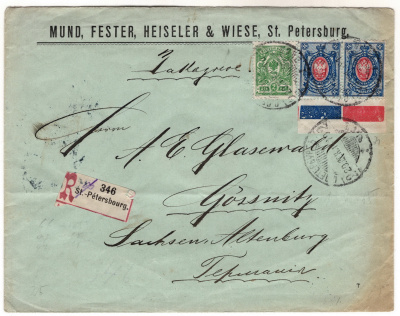 MUND, FESTER, HEISELER & WIESE, St. Petersburg.
Заказное
Herrn
A. E. Glasewald
R 346
St.-Pétersbourg.
Gössnitz
Sachsen-Altenburg
Германия